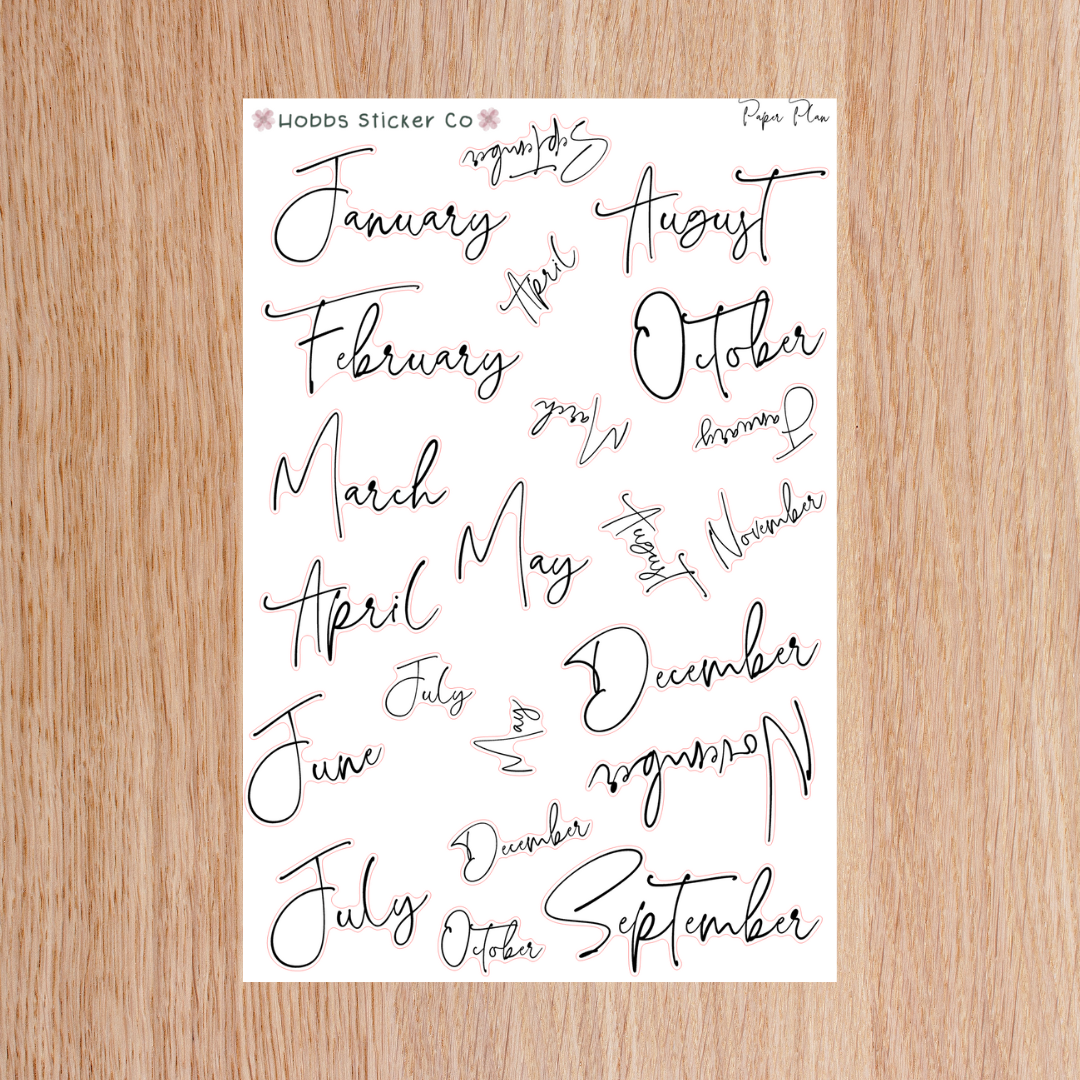 Hobbs Sticker Co
Paper Plan
September
January
August
April
February
October
March
January
March
May
August
November
April
July
December
June
May
November
December
July
October
September